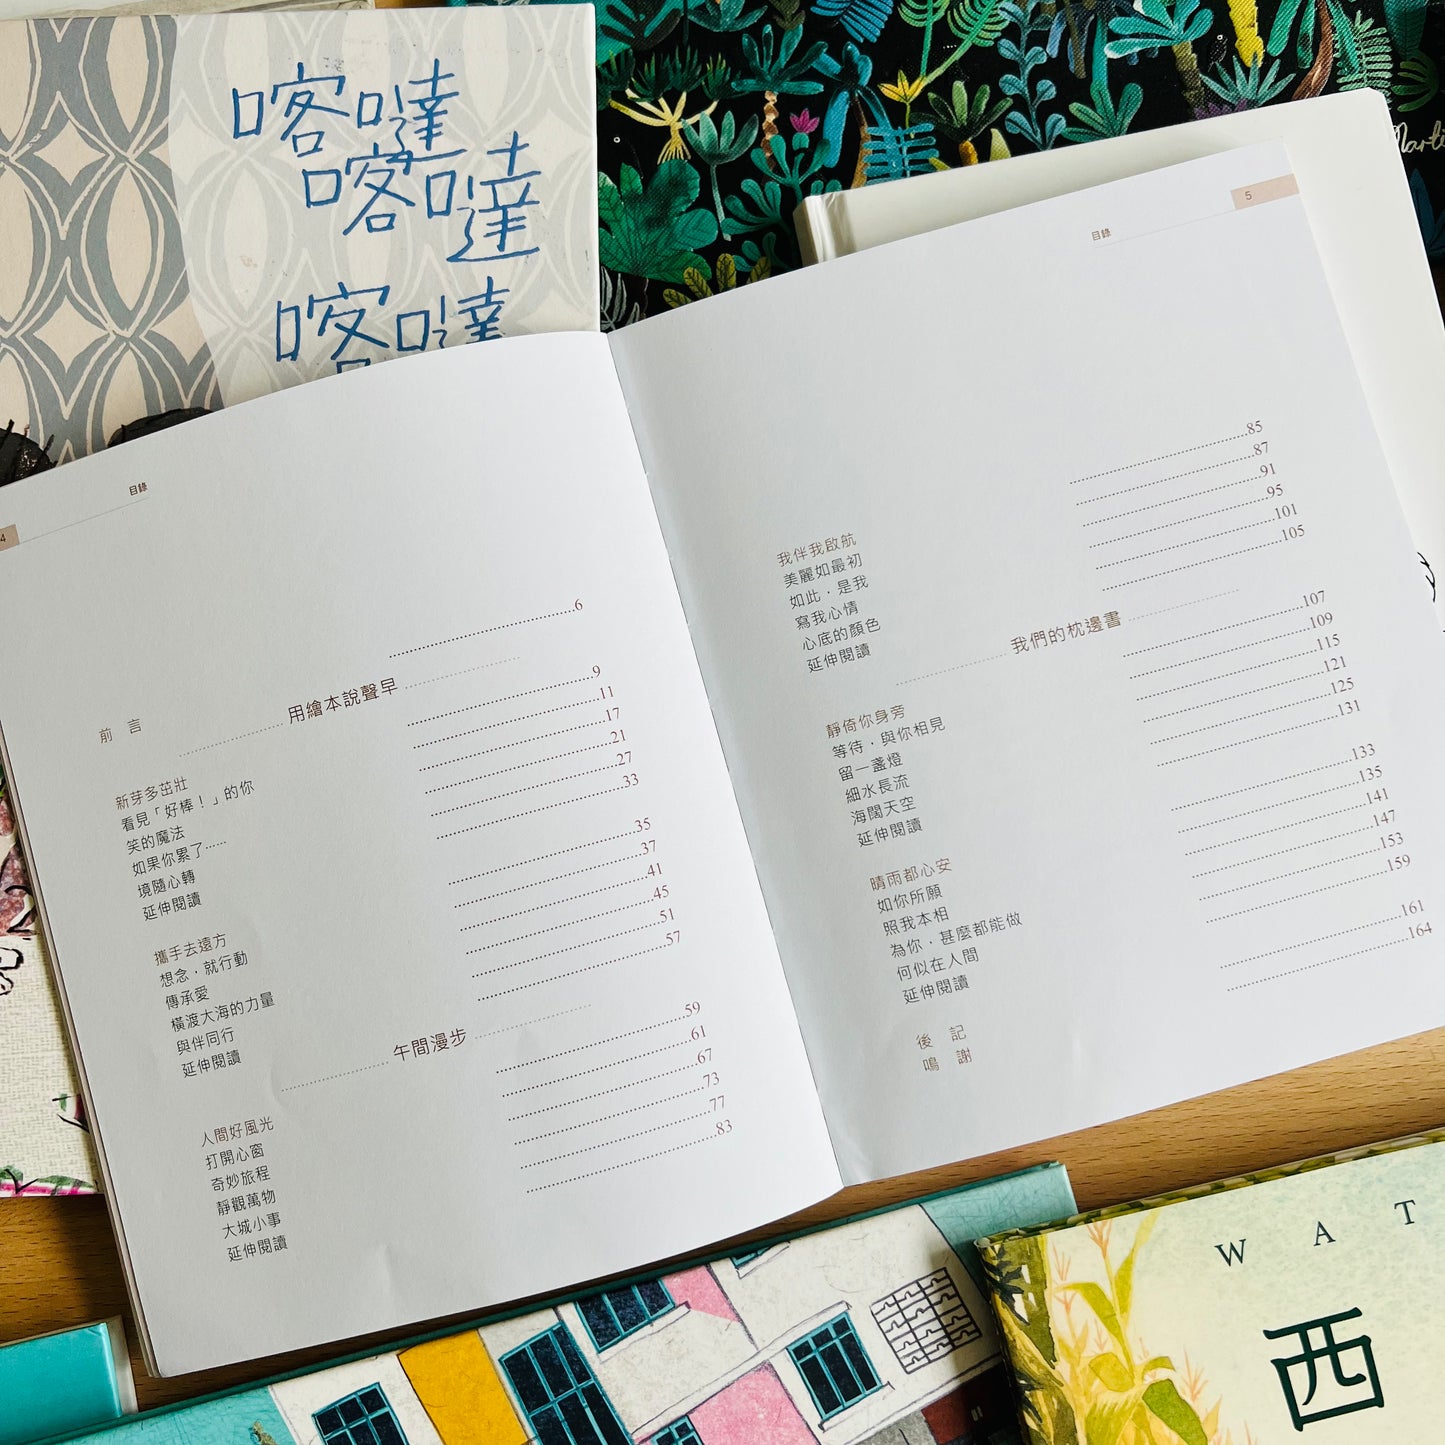 喀噠
喀噠
喀噠
Marti
4
目錄
前 言 6
用繪本說聲早
新芽多茁壯 9
看見「好棒！」的你 11
笑的魔法 17
如果你累了⋯⋯ 21
境隨心轉 27
延伸閱讀 33
攜手去遠方 35
想念，就行動 37
傳承愛 41
橫渡大海的力量 45
與伴同行 51
延伸閱讀 57
午間漫步
人間好風光 59
打開心窗 61
奇妙旅程 67
靜觀萬物 73
大城小事 77
延伸閱讀 83
目錄
5
我伴我啟航 85
美麗如最初 87
如此，是我 91
寫我心情 95
心底的顏色 101
延伸閱讀 105
我們的枕邊書
靜倚你身旁 107
等待，與你相見 109
留一盞燈 115
細水長流 121
海闊天空 125
延伸閱讀 131
晴雨都心安 133
如你所願 135
照我本相 141
為你，甚麼都能做 147
何似在人間 153
延伸閱讀 159
後 記 161
鳴 謝 164
WAT
西